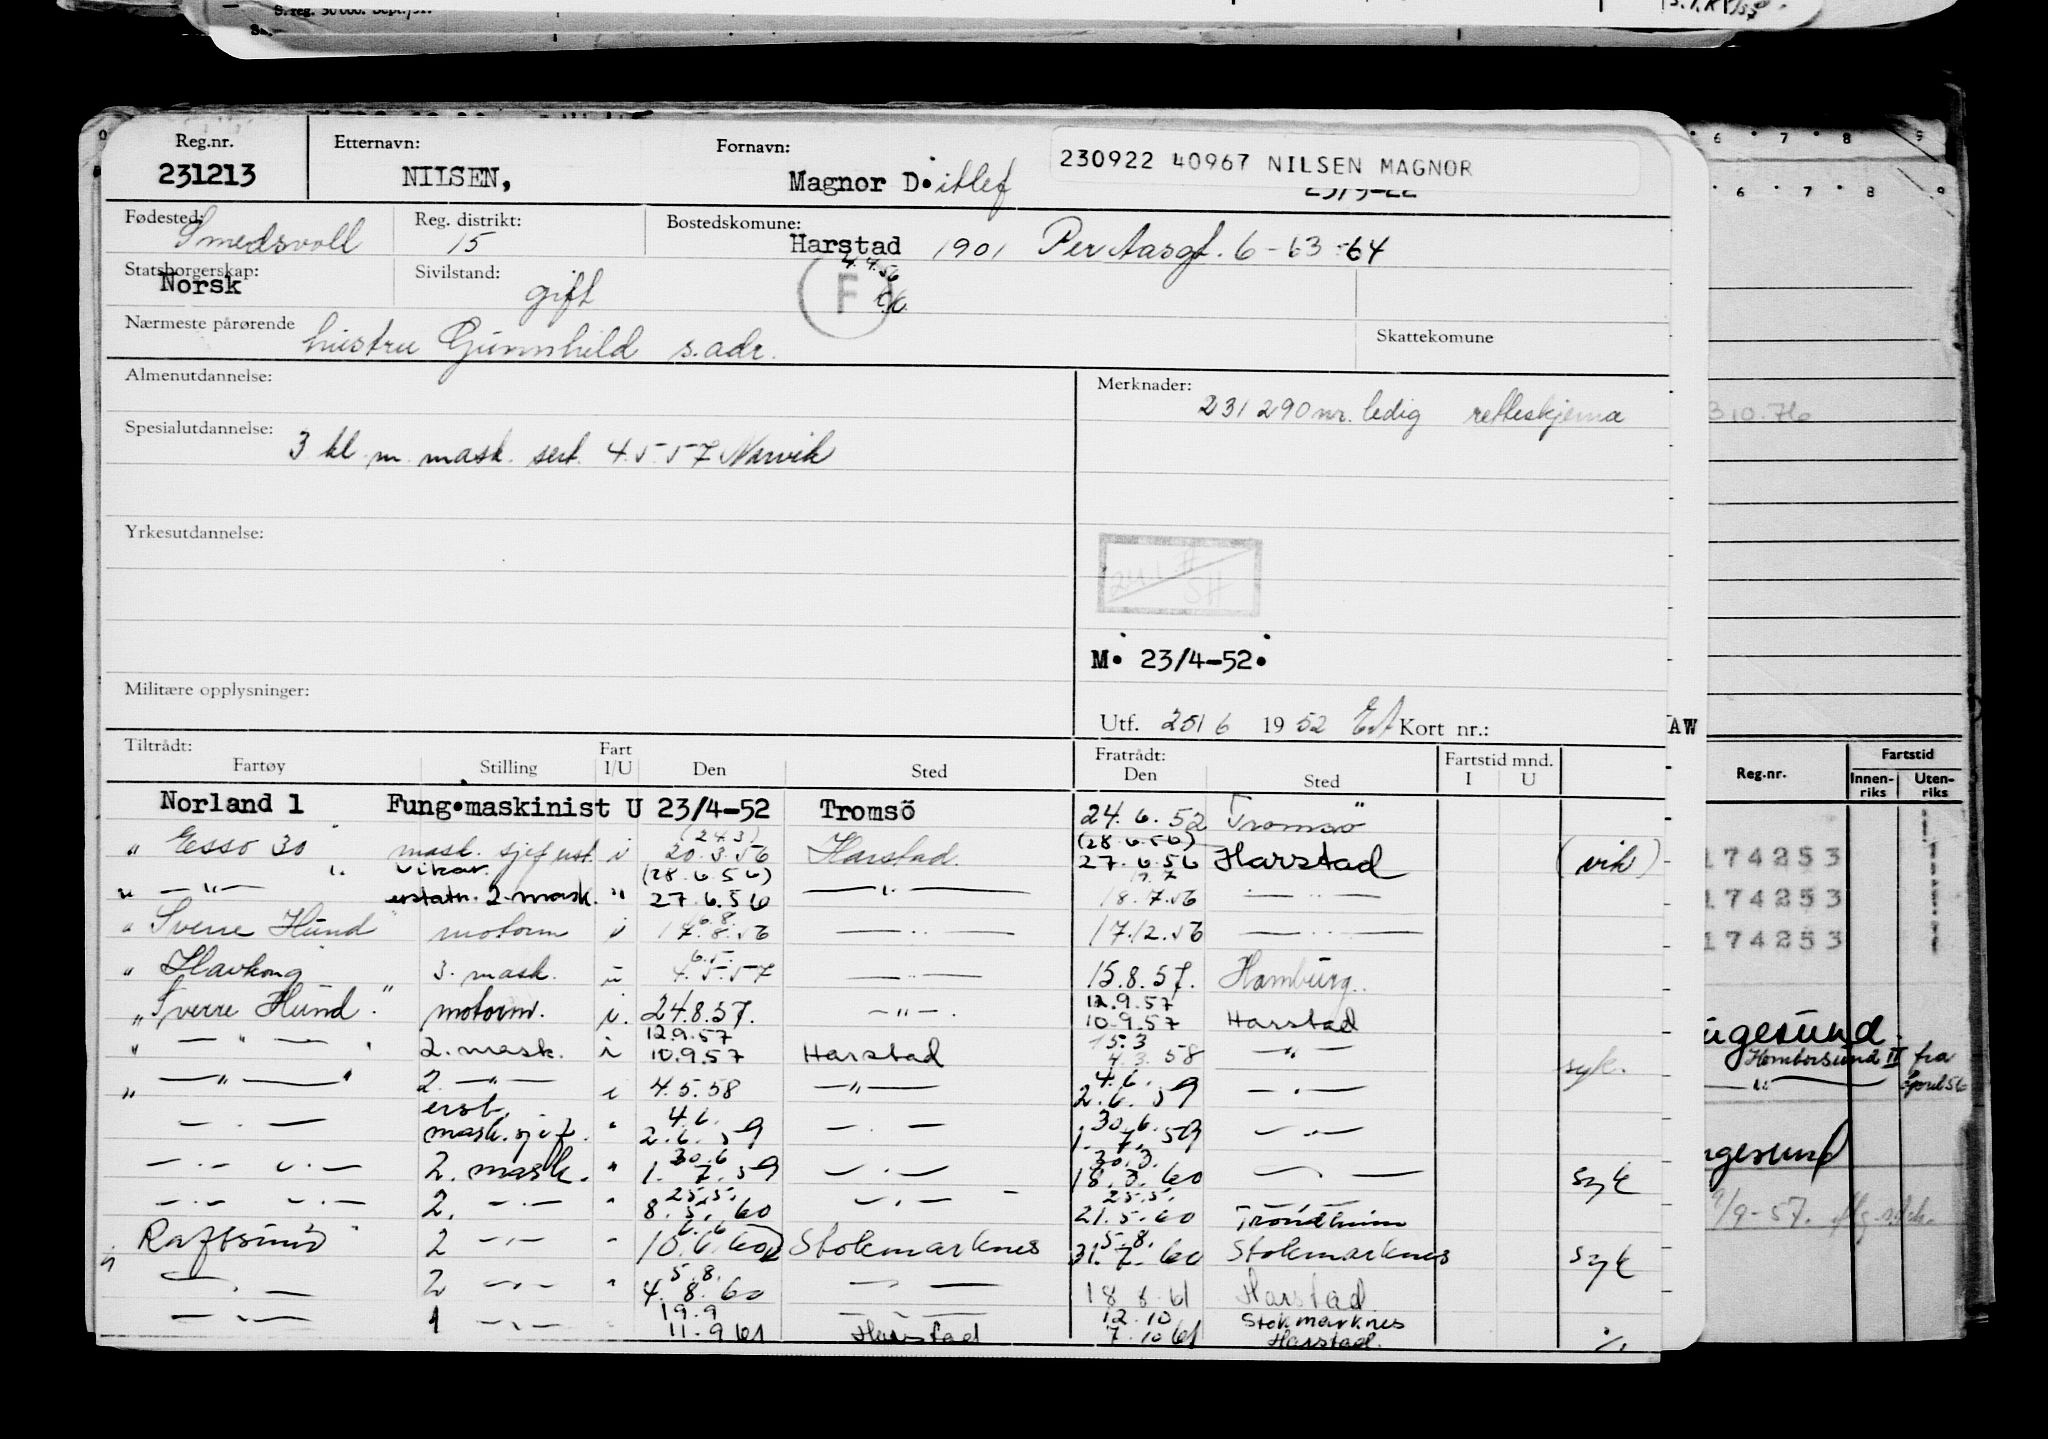 S. reg. 30 000. Sept./51.
Reg.nr. Etternavn: Fornavn: 230922 40967 NILSEN MAGNOR
231213 NILSEN, Magnor D. itlef 23/9-22
Fødested: Smedsvoll Reg. distrikt: 15 Bostedskomune: Harstad 1901 Per Aasgt. 6 - 63 - 64
Statsborgerskap: Norsk Sivilstand: gift F 4.4.56
Nærmeste pårørende hustru Gunnhild s. adr. Skattekomune
Almenutdannelse: Merknader: 231290 nr. ledig retteskjema
Spesialutdannelse: 3 kl. m. mask. sert. 4.5.57 Narvik
Yrkesutdannelse:
M. 23/4-52.
Militære opplysninger:
Utf. 25/6 1952 Kort nr.: AW
Tiltrådt: Fart Fratrådt: Fartstid mnd.
Fartøy Stilling I/U Den Sted Den Sted I U
Norland 1 Fung.maskinist U 23/4-52 Tromsö 24.6.52 Tromsö
(24.3) (28.6.56)
" Esso 30 " mask. sjef erst. i 20.3.56 Harstad 27.6.56 Harstad (vik)
vikar. (28.6.56) 17.7
" — " — erstatn. 2. mask. " 27.6.56 — " — 18.7.56 — " —
16.8.
" Sverre Hund " motorm i 14.8.56 — " — 17.12.56 — " —
6.5.
" Havkong 3. mask. u 4.5.57 — " — 15.8.57. Hamburg.
12.9.57
" Sverre Hund " motorm. i. 24.8.57. — " — 10.9.57 Harstad
12.9.57 15.3
" — " — 2. mask. i 10.9.57 Harstad 4.3.58 — " — syk.
4.6.
" — " — 2. — " — i 4.5.58 — " — 2.6.59 — " —
erst. 4.6. 30.6.
— " — mask. sjef. " 2.6.59 — " — 1.7.59 — " —
30.6 30.3.
— " — 2. mask. " 1.7.59 — " — 18.3.60 — " — syk
25.5. 25.5.
— " — 2. — " — " 8.5.60 — " — 21.5.60 Trondheim
6.6 5.8.
" Raftsund " 2 — " — " 10.6.60 Stokmarknes 31.7.60 Stokmarknes syk
5.8.
— " — 2 — " — " 4.8.60 — " — 18.8.61 Harstad
19.9 12.10 Stokmarknes
— " — 1 — " — 11.9.61 Harstad 7.10.61 Harstad. %
6 7 8 9
6 7 8 9
310.76
Reg.nr. Fartstid
Innen-riks Uten-riks
174253
174253
174253
ugesund.
Homborsund II fra
April 56
ngesund
9/9-57.